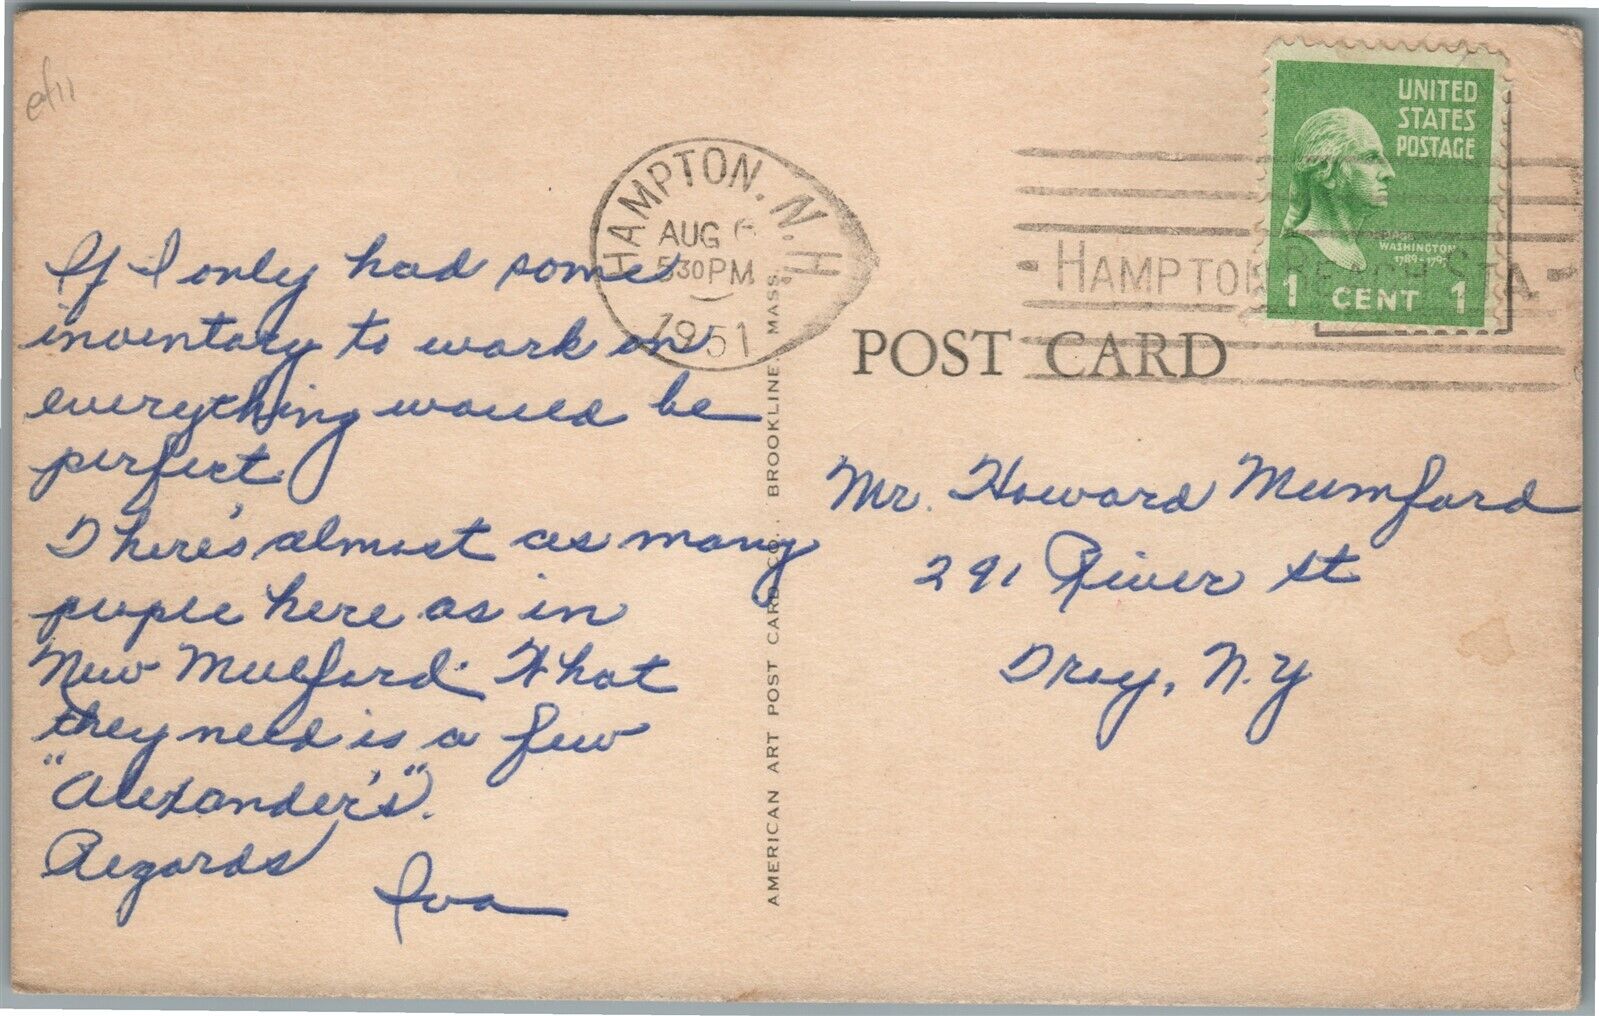 If I only had some
inventory to work on
everything would be
perfect.
There's almost as many
people here as in
New Mulford. What
they need is a few
"Alexander's".
Regards
Iva
HAMPTON, N.H.
AUG 6
5:30 PM
1951
HAMPTON BEACH STA.
UNITED
STATES
POSTAGE
WASHINGTON
1789-1797
1 CENT 1
POST CARD
Mr. Howard Mumford
291 River St
Troy, N.Y
AMERICAN ART POST CARD CO., BROOKLINE MASS.